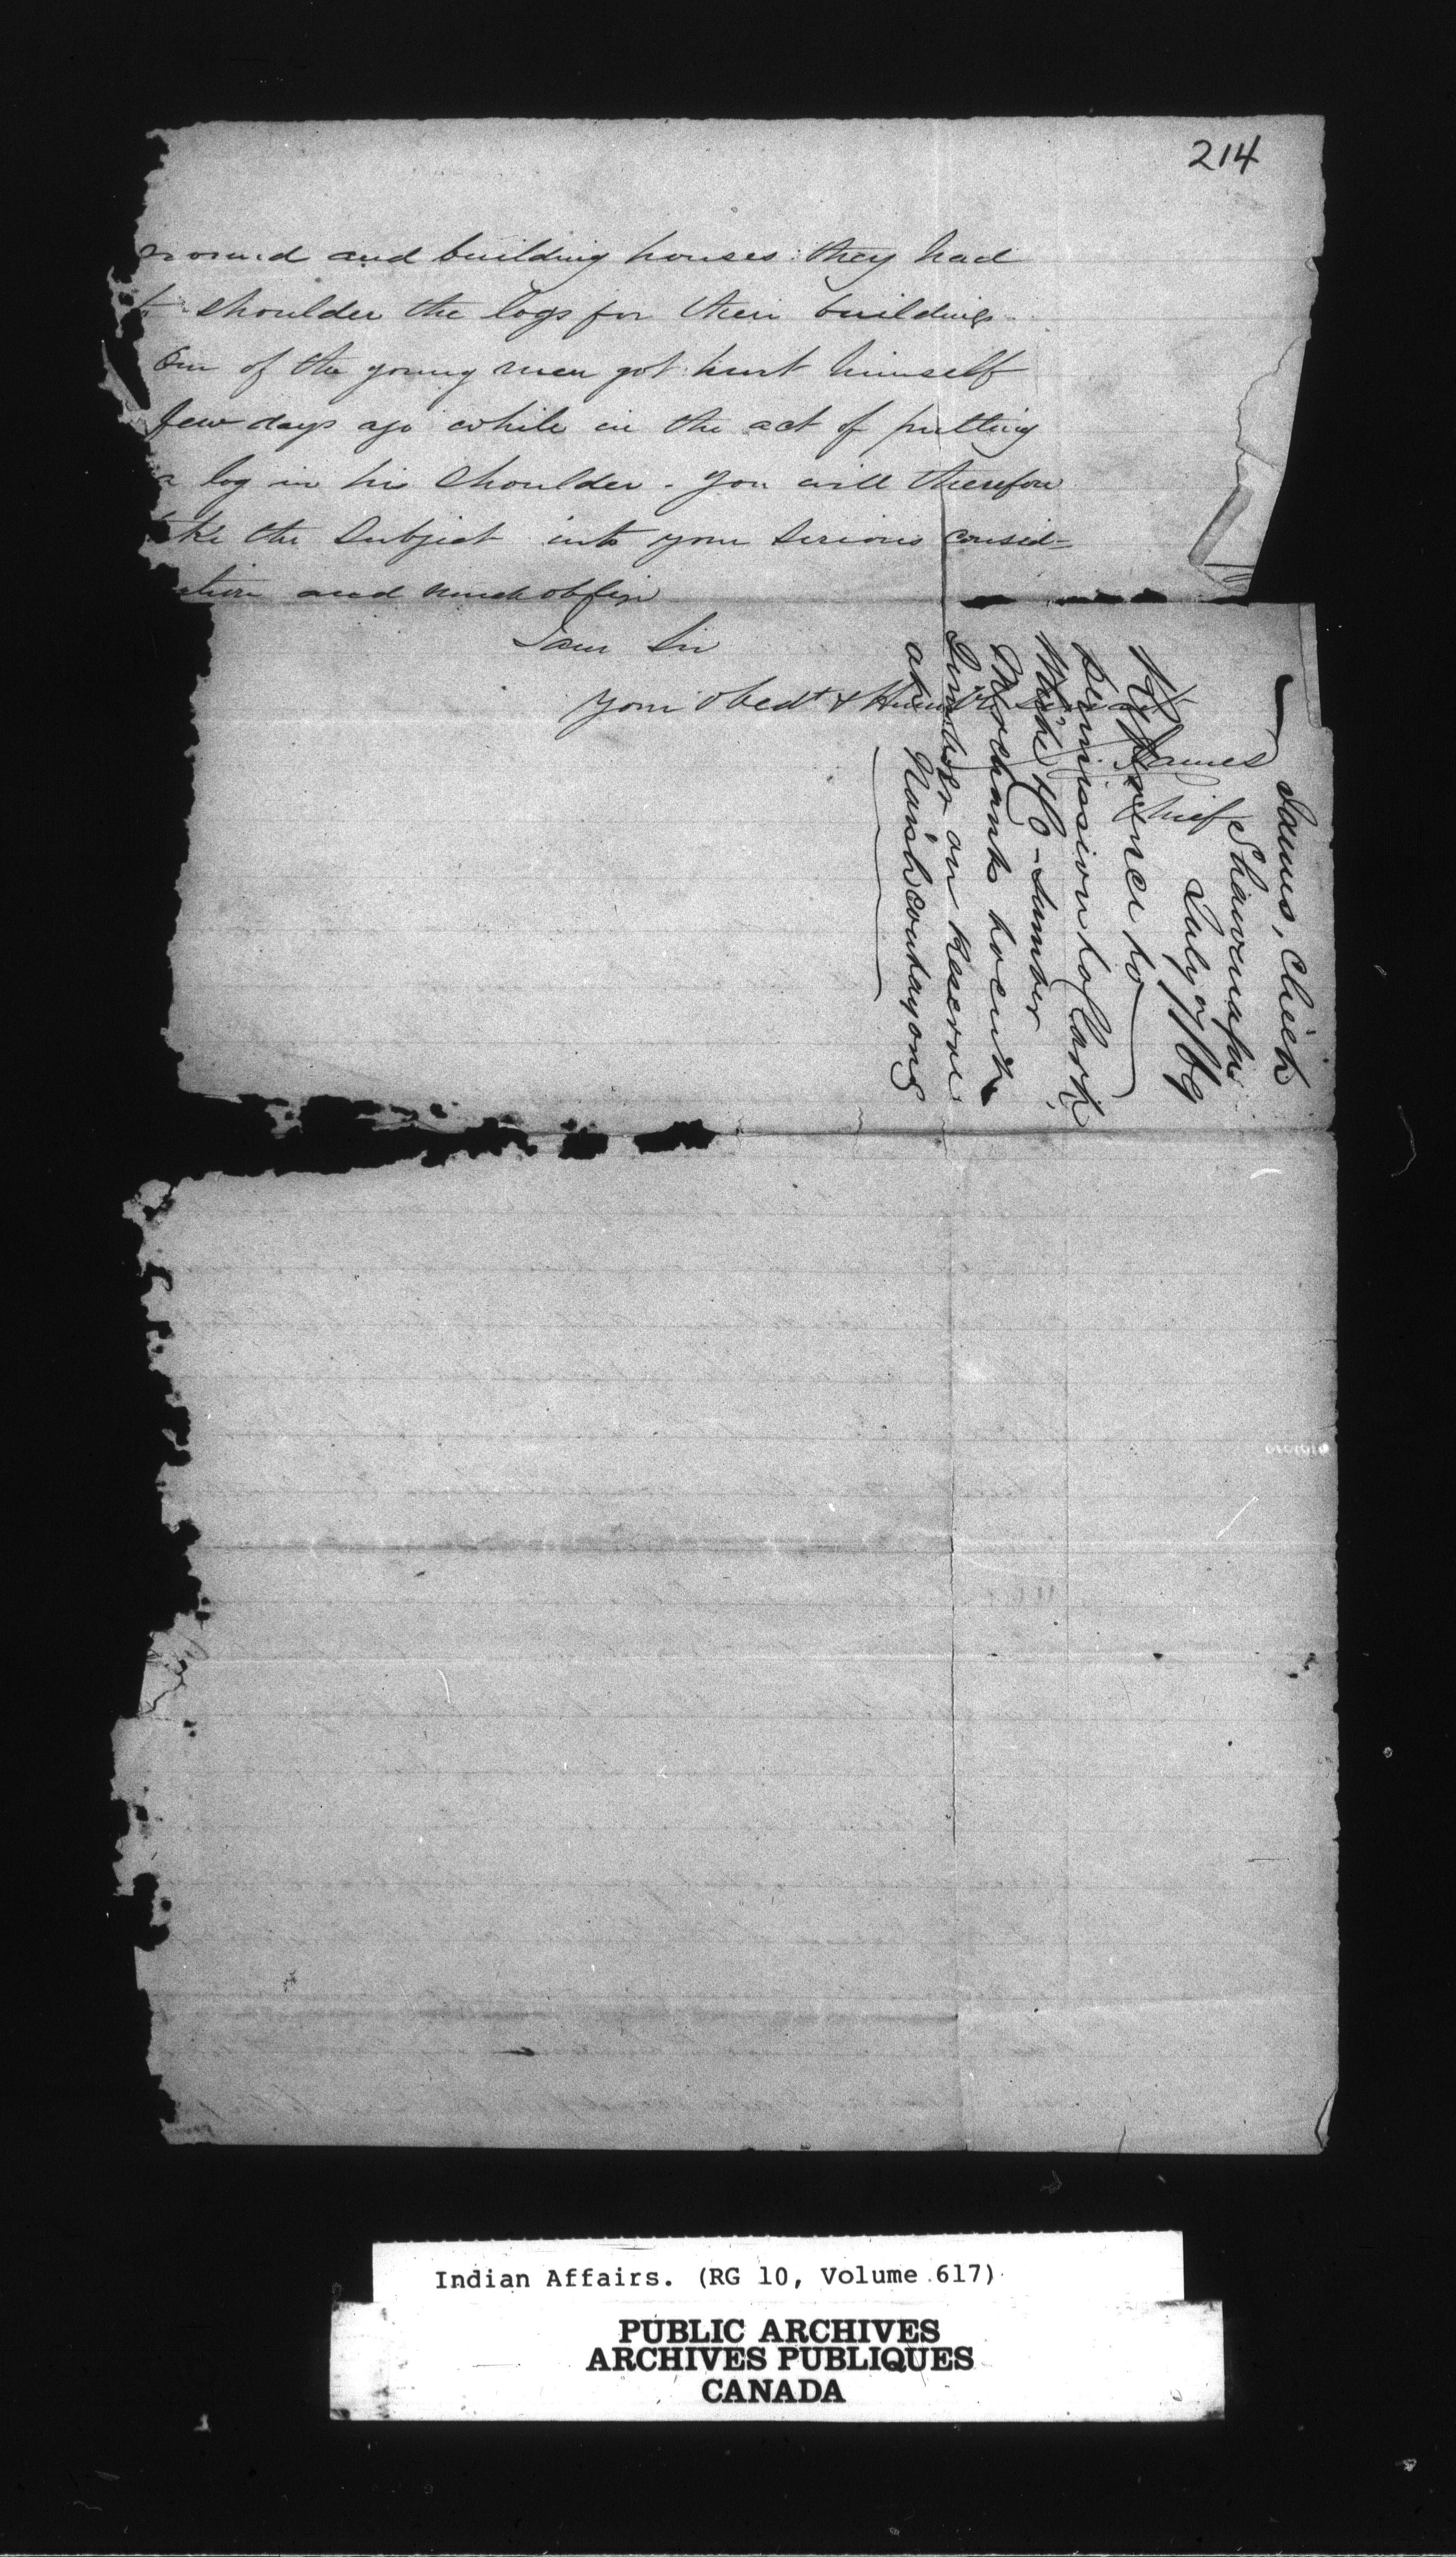 214
and building houses they had
shoulder the logs for their buildings
One of the young men got hurt himself
few days ago while in the act of putting
a log in his shoulder. You will therefore
the subject into your serious consid=
and much oblige
I am Sir
your obedt & Humble Servant
James
Chief
James, Chief
July 7/69
Reference to
permission to Clark,
White & Co - Lumber
Merchants to cut
Timber on Reserve
at Naishcoutayong
Indian Affairs. (RG 10, Volume 617)
PUBLIC ARCHIVES
ARCHIVES PUBLIQUES
CANADA